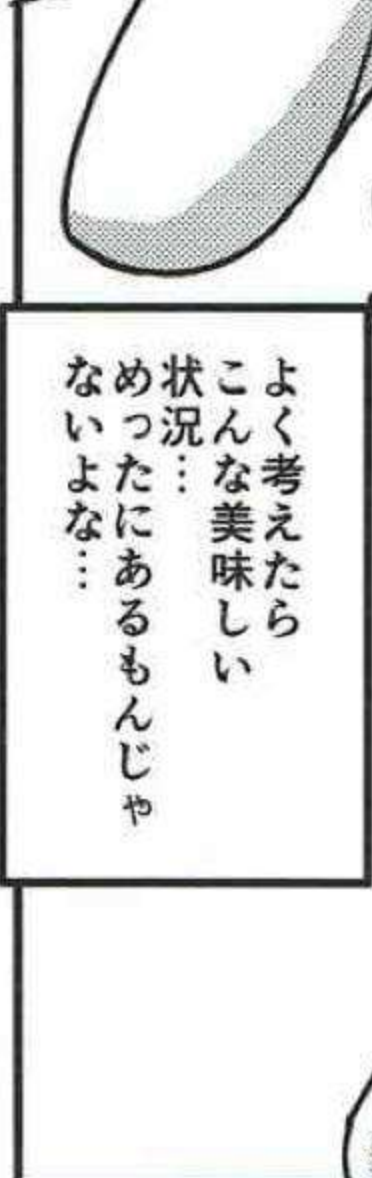 よく考えたら
こんな美味しい
状況…
めったにあるもんじゃ
ないよな…